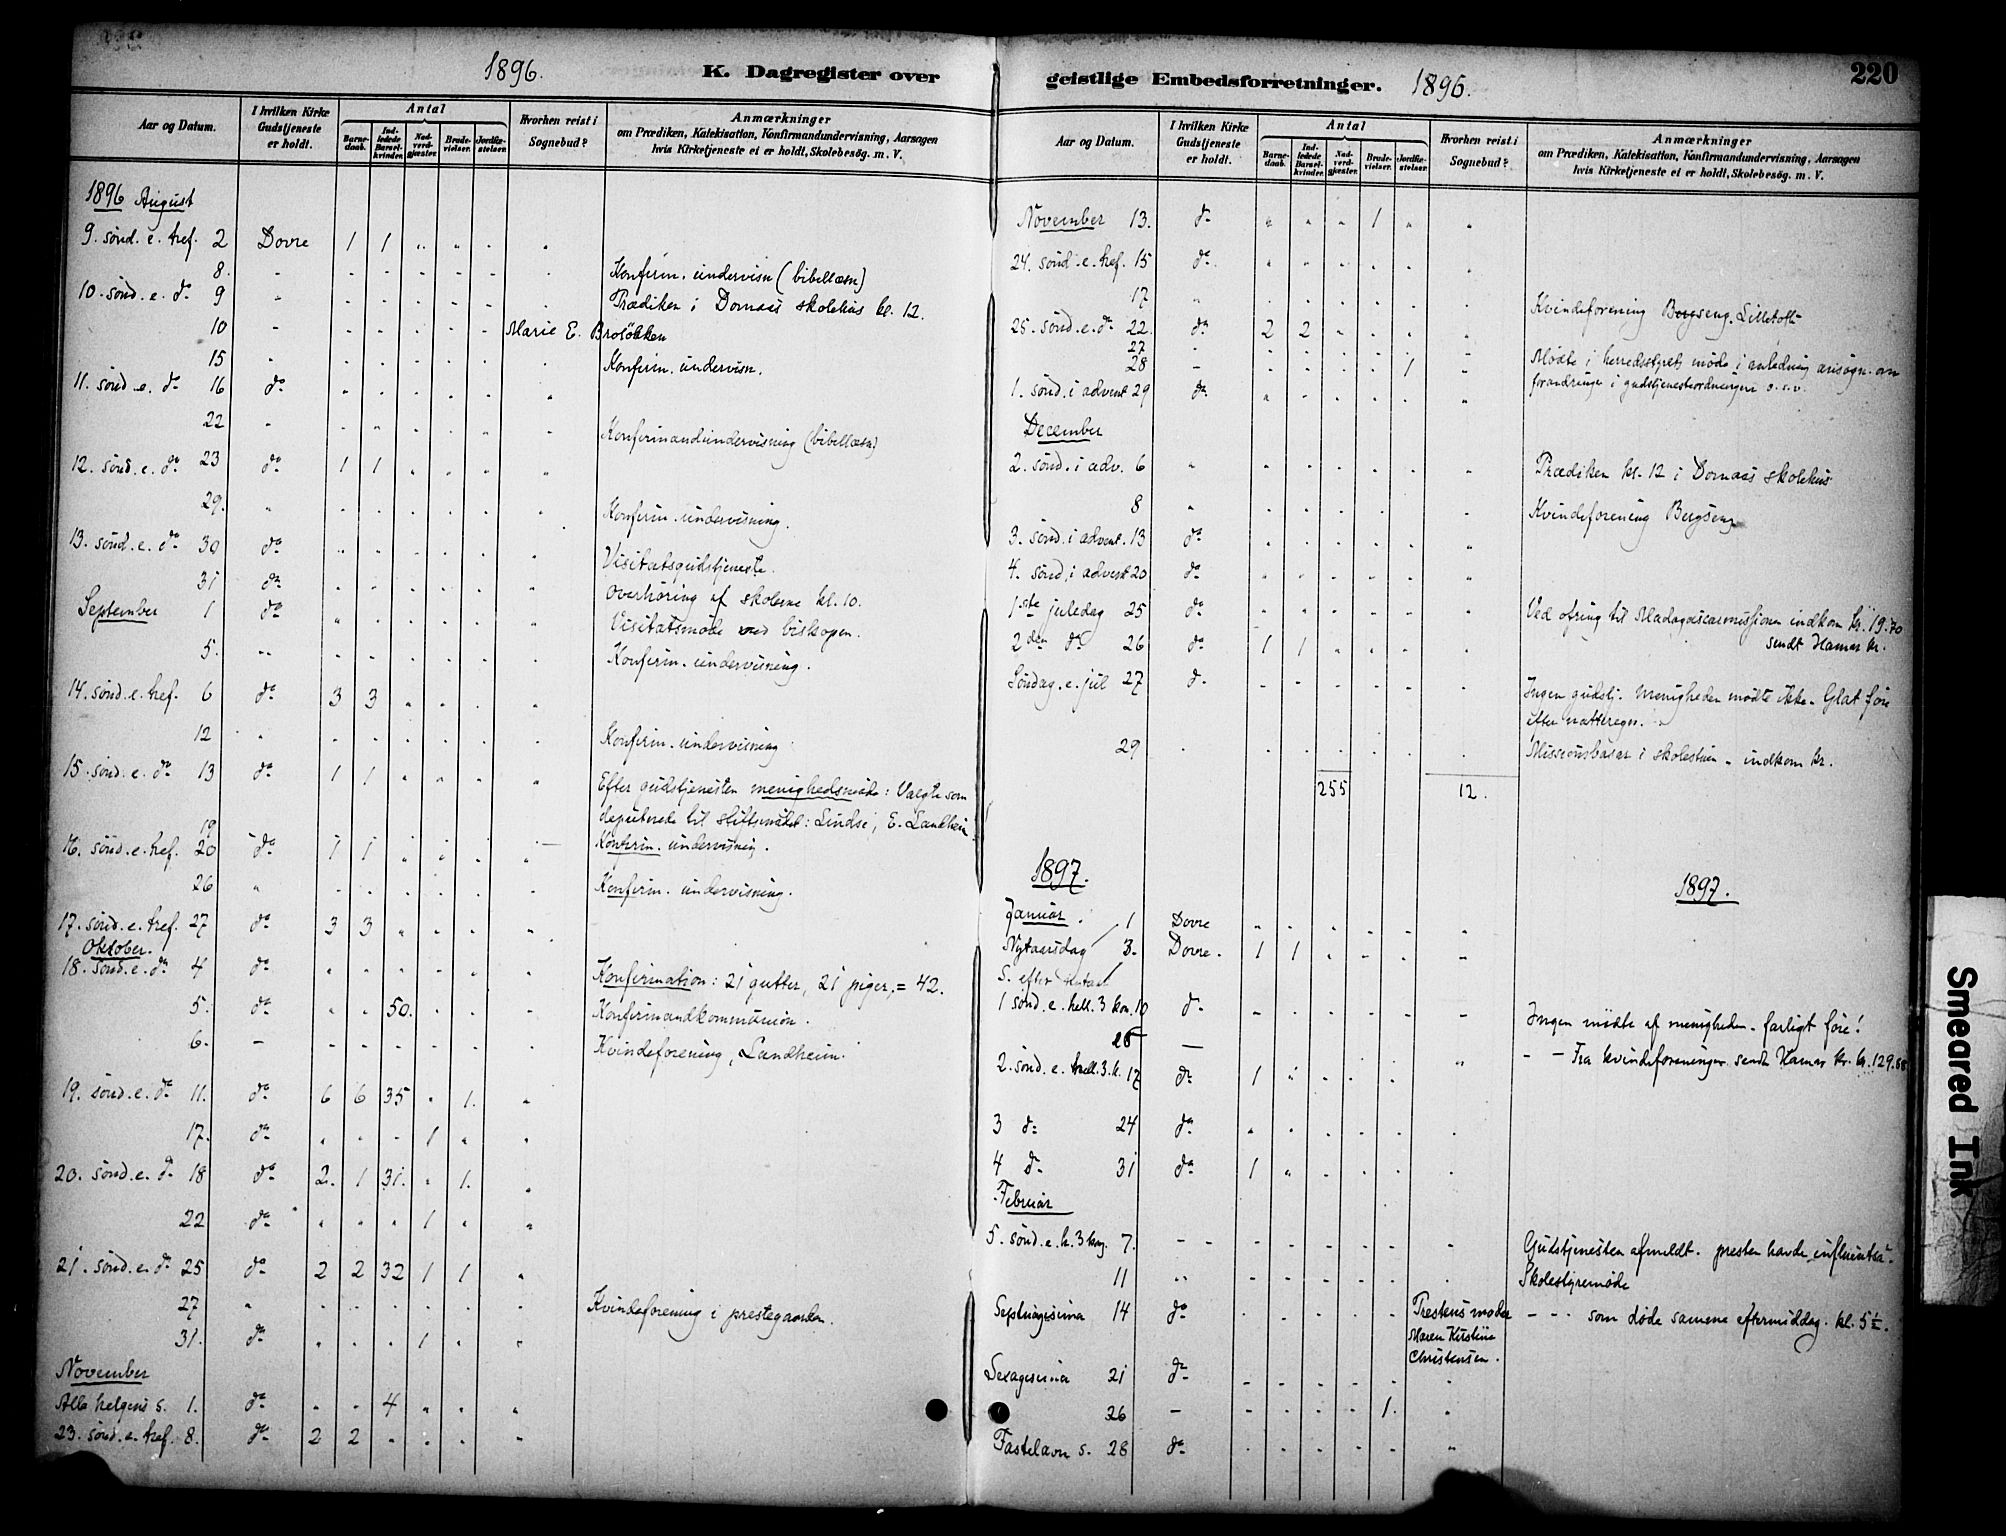 1896. K. Dagregister over
Aar og Datum. I hvilken Kirke Gudstjeneste er holdt. Antal Barnedaab. Indledede Barselkvinder. Nadverdgjæster. Brudevielser. Jordfæstelser. Hvorhen reist i Sognebud? Anmærkninger om Prædiken, Katekisation, Konfirmandundervisning, Aarsagen hvis Kirketjeneste ei er holdt, Skolebesøg. m. V.
1896 August
9. sønd. e. tref. 2 Dovre 1 1 " " " "
8. - - - - - - - Konfirm. undervisn (bibellæsn)
10. sønd. e. do 9 " - - - - - - Prædiken i Domaas skolehus kl. 12.
10 - - - - - - Marie E. Broløkken
15 - - - - - - - Konfirm. undervisn.
11. sønd. e. do 16 do " " " " " "
22 " " " " " " " Konfirmandundervisning (bibellæsn)
12. sønd. e. do 23 do 1 1 " " " "
29. " " " " " " " Konfirm. undervisning.
13. sønd. e. do 30 do " " " " " " Visitatsgudstjeneste.
31 do " " " " " " Overhøring af skolerne kl. 10.
September 1 do " " " " " " Visitatsmøde ved biskopen.
5. " " " " " " " Konfirm. undervisning.
14. sønd. e. tref. 6 do 3 3 " " " "
12 " " " " " " " Konfirm. undervisning
15. sønd. e. do 13 do 1 1 " " " " Efter gudstjenesten menighedsmøde: Valgte som
deputerede til stiftsmødet: Lindsø, E. Landheim
19 Konfirm. undervisning.
16. sønd. e. tref. 20 do 1 1 " " " "
26 " " " " " " " Konfirm. undervisning.
17. sønd. e. tref. 27 do 3 3 " " " "
Oktober.
18. sønd. e. do 4 do " " " " " " Konfirmation: 21 gutter, 21 piger, = 42.
5. do " " 50. " " " Konfirmandkommunion.
6. - - - - - - - Kvindeforening, Landheim.
19. sønd. e. do 11. do 6 6 35 " 1. "
17. do " " " 1 " "
20. sønd. e. do 18 do 2. 1 31. " 1. "
22 do " " " 1 " "
21. sønd. e. do 25 do 2 2 32 1 1 "
27 " " " " " " " Kvindeforening i prestegaarden.
31. do " " " 1 " "
November
Alle helgens s. 1. do " " 4 " " "
23. sønd. e. tref. 8. do 2 2 " " " "
geistlige Embedsforretninger. 1896. 220
Aar og Datum. I hvilken Kirke Gudstjeneste er holdt. Antal Barnedaab. Indledede Barselkvinder. Nadverdgjæster. Brudevielser. Jordfæstelser. Hvorhen reist i Sognebud? Anmærkninger om Prædiken, Katekisation, Konfirmandundervisning, Aarsagen hvis Kirketjeneste ei er holdt, Skolebesøg. m. V.
November 13. do " " " 1 " "
24. sønd. e. tref. 15 do " " " " " "
17 " " " " " " " Kvindeforening Bergseng. Lilletoft
25. sønd. e. do 22. do 2 2 " " " "
27 - - - - - - - Møde i herredsstyrets møde i anledning ansøgn. om
28 - - - - - 1 - forandringer i gudstjenesteordningen o. s. v.
1. sønd. i advent 29 do " " " " " "
December
2. sønd. i adv. 6 " " " " " " " Prædiken kl. 12 i Domaas skolehus
8 " " " " " " " Kvindeforening Bergseng
3. sønd. i advent. 13 do " " " " " "
4. sønd. i advent 20 do " " " " " "
1ste juledag 25 do " " " " " " Ved ofring til Madagascarmissionen indkom kr. 19.70
2den do 26 do 1 1 " " " " sendt Hamar kr.
Søndag. e. jul 27 do - - - - - - Ingen gudstj. Menigheden mødte ikke. Glat føre
efter natteregn.
29 " " " " " " " Missionsbasar i skolestuen. indkom kr.
255 12.
1897. 1897.
Januar. 1 Dovre " " " " " "
Nytaarsdag 3. Dovre. 1 1 " " " "
S. efter nytaar
1 sønd. e. hell. 3 kon. 10 do - - - - - - Ingen mødte af menigheden. farligt føre!
— " - - Fra kvindeforeninger sendt Hamar kr. kr. 129.88
2. sønd. e. hell. 3. k. 17 do 1 " " " "
3 do 24 do " " " " " "
4 do 31 do 1 " " " " "
Februar
5. sønd. e. h. 3 kong. 7. - - - - - - - Gudstjenesten afmeldt. presten havde influentsa.
11 " - - - - - - Skolestyremøde
Septuagesima 14 do - - - - - Prestens moder - - - som døde samme eftermiddag. kl. 5½.
Maren Kirstine
Christensen.
Sexagesima 21 do - - - - - -
26 - - - - - 1. "
Fastelavn s. 28 do - - - - - "
Smeared Ink